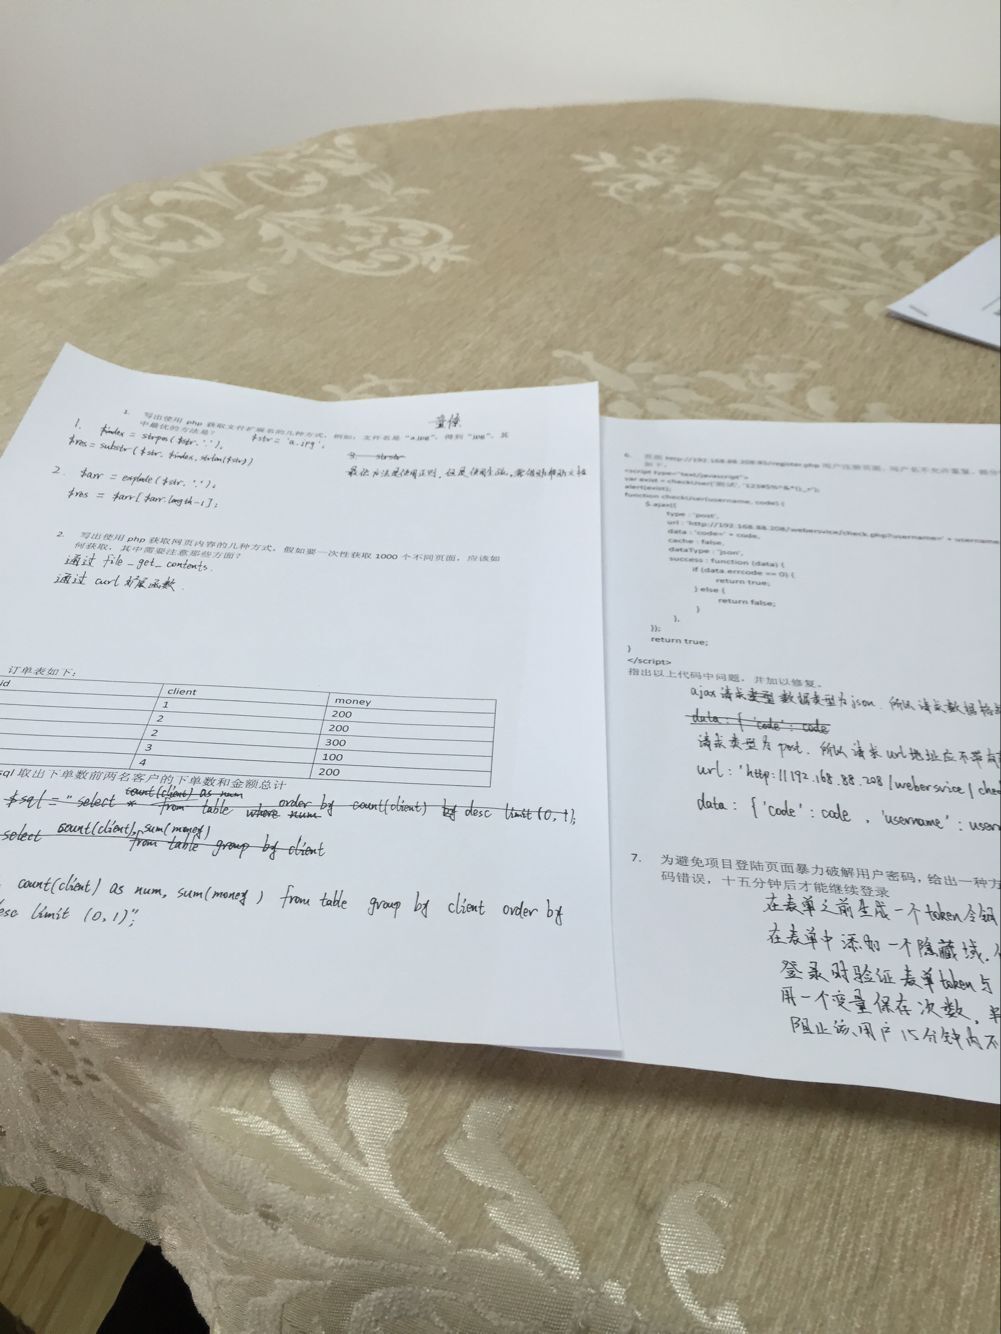 1. 写出使用 php 获取文件扩展名的几种方式，例如：文件名是 "a.jpg"，得到 "jpg"，其
中最优的方法是？ $str = 'a.jpg';
1. $index = strpos($str, '.');
$res = substr($str, $index, strlen($str))
3. strstr
最优方法是使用正则，
2. $arr = explode($str, '.');
$res = $arr[$arr.length-1];
2. 写出使用 php 获取网页内容的几种方式，假如要一次性获取 1000 个不同页面，应该如
何获取，其中需要注意那些方面？
通过 file_get_contents.
通过 curl 扩展函数.
订单表如下：
id client money
1 200
2 200
2 300
3 100
4 200
sql 取出下单数前两名客户的下单数和金额总计
count(client) as num
$sql = "select * from table where num order by count(client) by desc limit (0,1);
select count(client), sum(money)
from table group by client
count(client) as num, sum(money) from table group by client order by
desc limit (0,1)";
6. http://192.168.88.208:85/register.php 用户注册页面，用户名不允许重复，
如下，
<script type="text/javascript">
var exist = checkUser('测试', '123#$%^&*()_+');
alert(exist);
function checkUser(username, code) {
$.ajax({
type : 'post',
url : 'http://192.168.88.208/webersvice/check.php?username=' + username
data : 'code=' + code,
cache : false,
dataType : 'json',
success : function (data) {
if (data.errcode == 0) {
return true;
} else {
return false;
}
},
});
return true;
}
</script>
指出以上代码中问题，并加以修复。
ajax 请求类型 数据类型为json. 所以请求数据格
data : { 'code' : code
请求类型为 post. 所以请求 url 地址应不带有
url : 'http://192.168.88.208/webersvice/che
data : { 'code' : code , 'username' : usern
7. 为避免项目登陆页面暴力破解用户密码，给出一种方
码错误，十五分钟后才能继续登录
在表单之前生成一个 token 令
在表单中添加一个隐藏域.
登录时验证表单token与
用一个变量保存次数，
阻止该用户15分钟内不